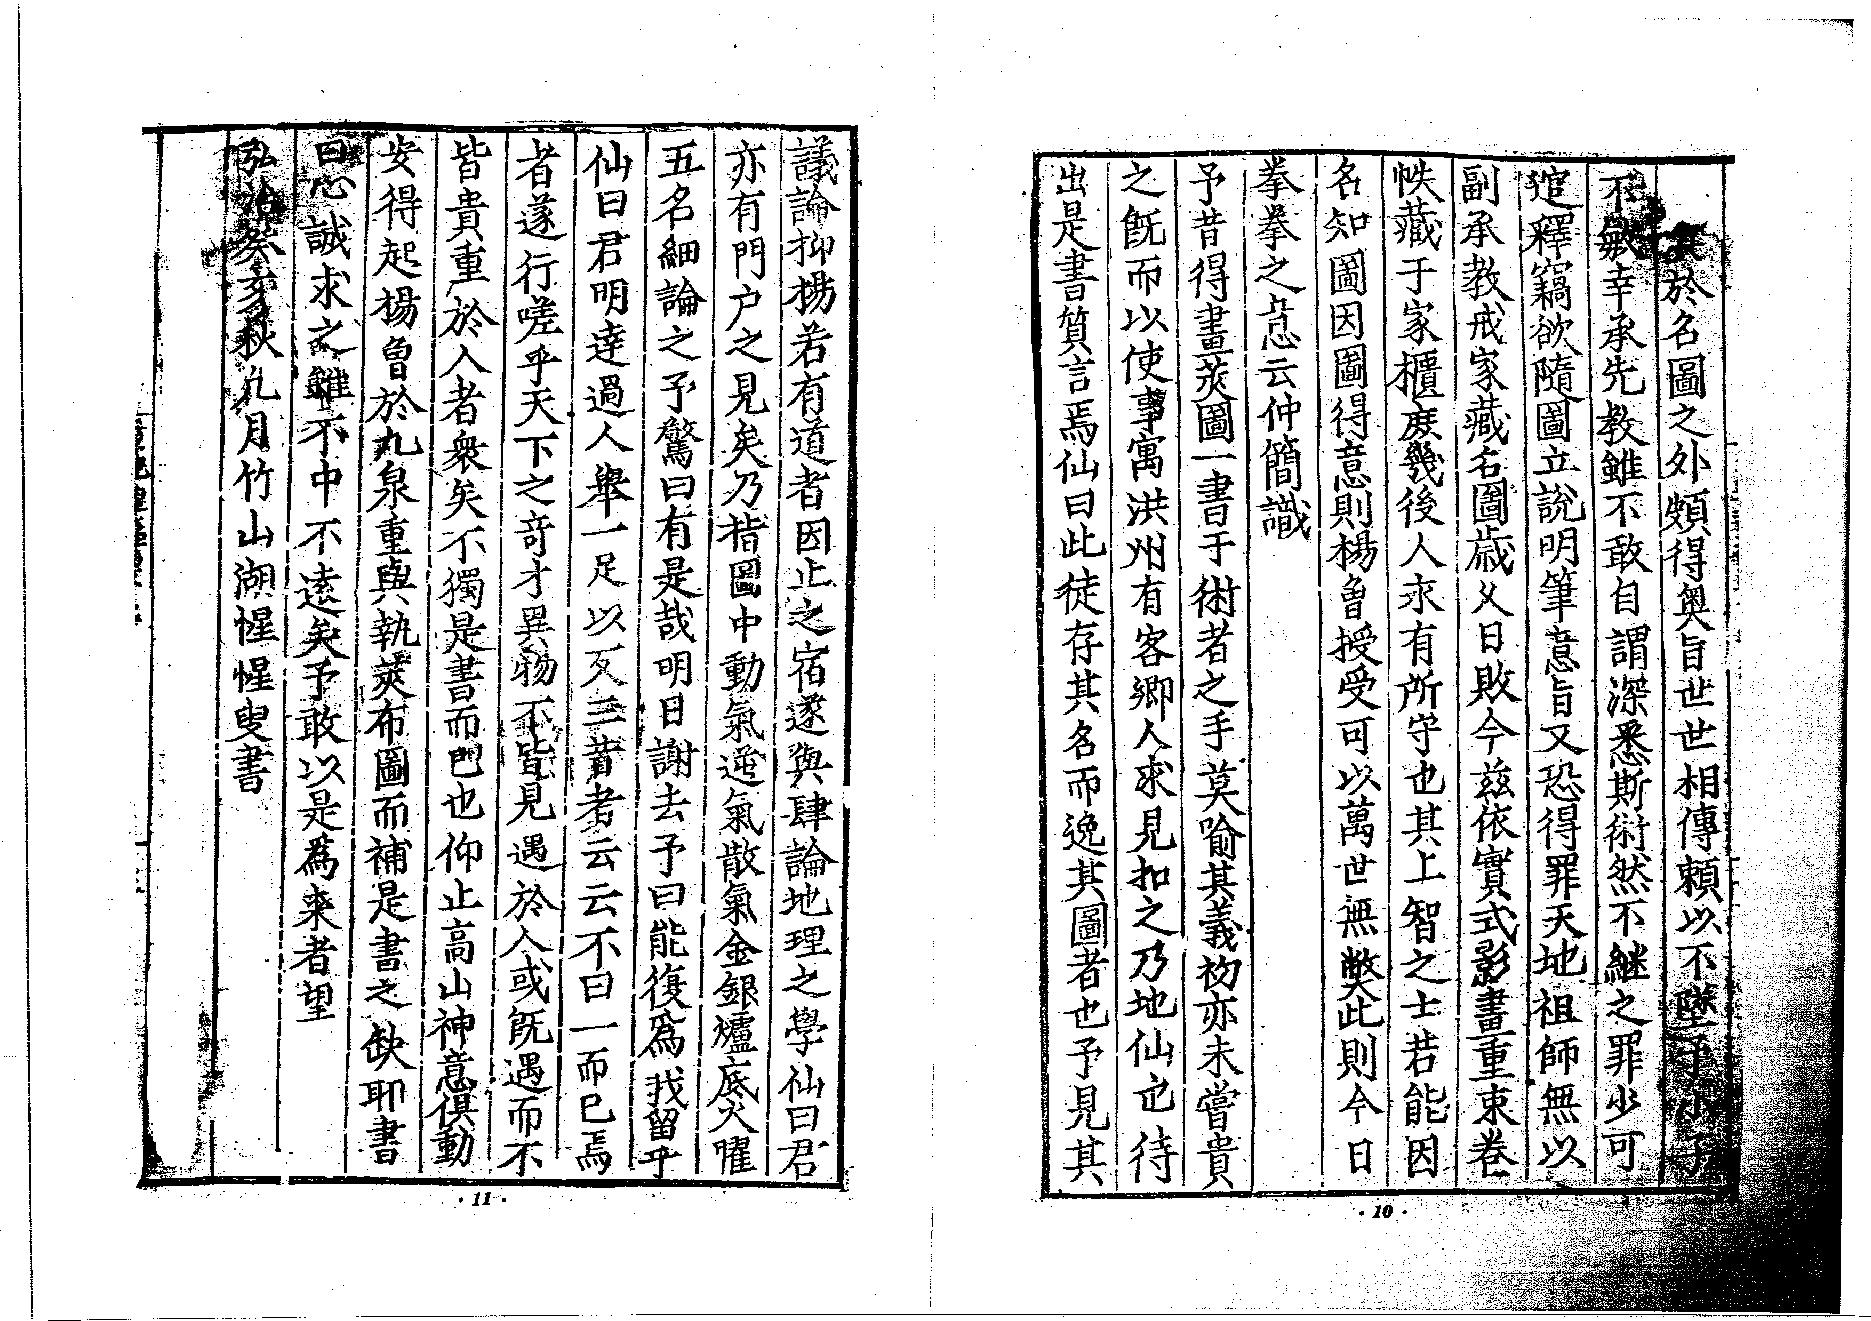 於名圖之外頗得奧旨世世相傳賴以不墜予小子
不敏幸承先教雖不敢自謂深悉斯術然不繼之罪少可
逭釋竊欲隨圖立說明筆意旨又恐得罪天地祖師無以
副承教戒家藏名圖歲乆日敗今兹依實式影畫重束卷
帙藏于家櫃庻幾後人求有所守也其上智之士若能因
名知圖因圖得意則楊曾授受可以萬世無獘此則今日
拳拳之意云仲簡識
予昔得畫莢圖一書于術者之手莫喻其義初亦未嘗貴
之旣而以使事寓洪州有客鄉人求見扣之乃地仙也待
出是書質言焉仙曰此徒存其名而逸其圖者也予見其
議論抑揚若有道者因止之宿遂與肆論地理之學仙曰君
亦有門户之見矣乃指圖中動氣逆氣散氣金銀爐底火曜
五名細論之予驚曰有是哉明日謝去予曰能復爲我留乎
仙曰君明達過人舉一足以反三昔者云云不曰一而已焉
者遂行嗟乎天下之奇才異物不皆見遇於人或旣遇而不
皆貴重於人者衆矣不獨是書而已也仰止高山神意俱動
安得起楊曾於九泉重與執莢布圖而補是書之缺耶書
曰心誠求之雖不中不遠矣予敢以是爲來者望
弘治癸亥秋九月竹山湖惺惺叟書
· 10 ·
· 11 ·